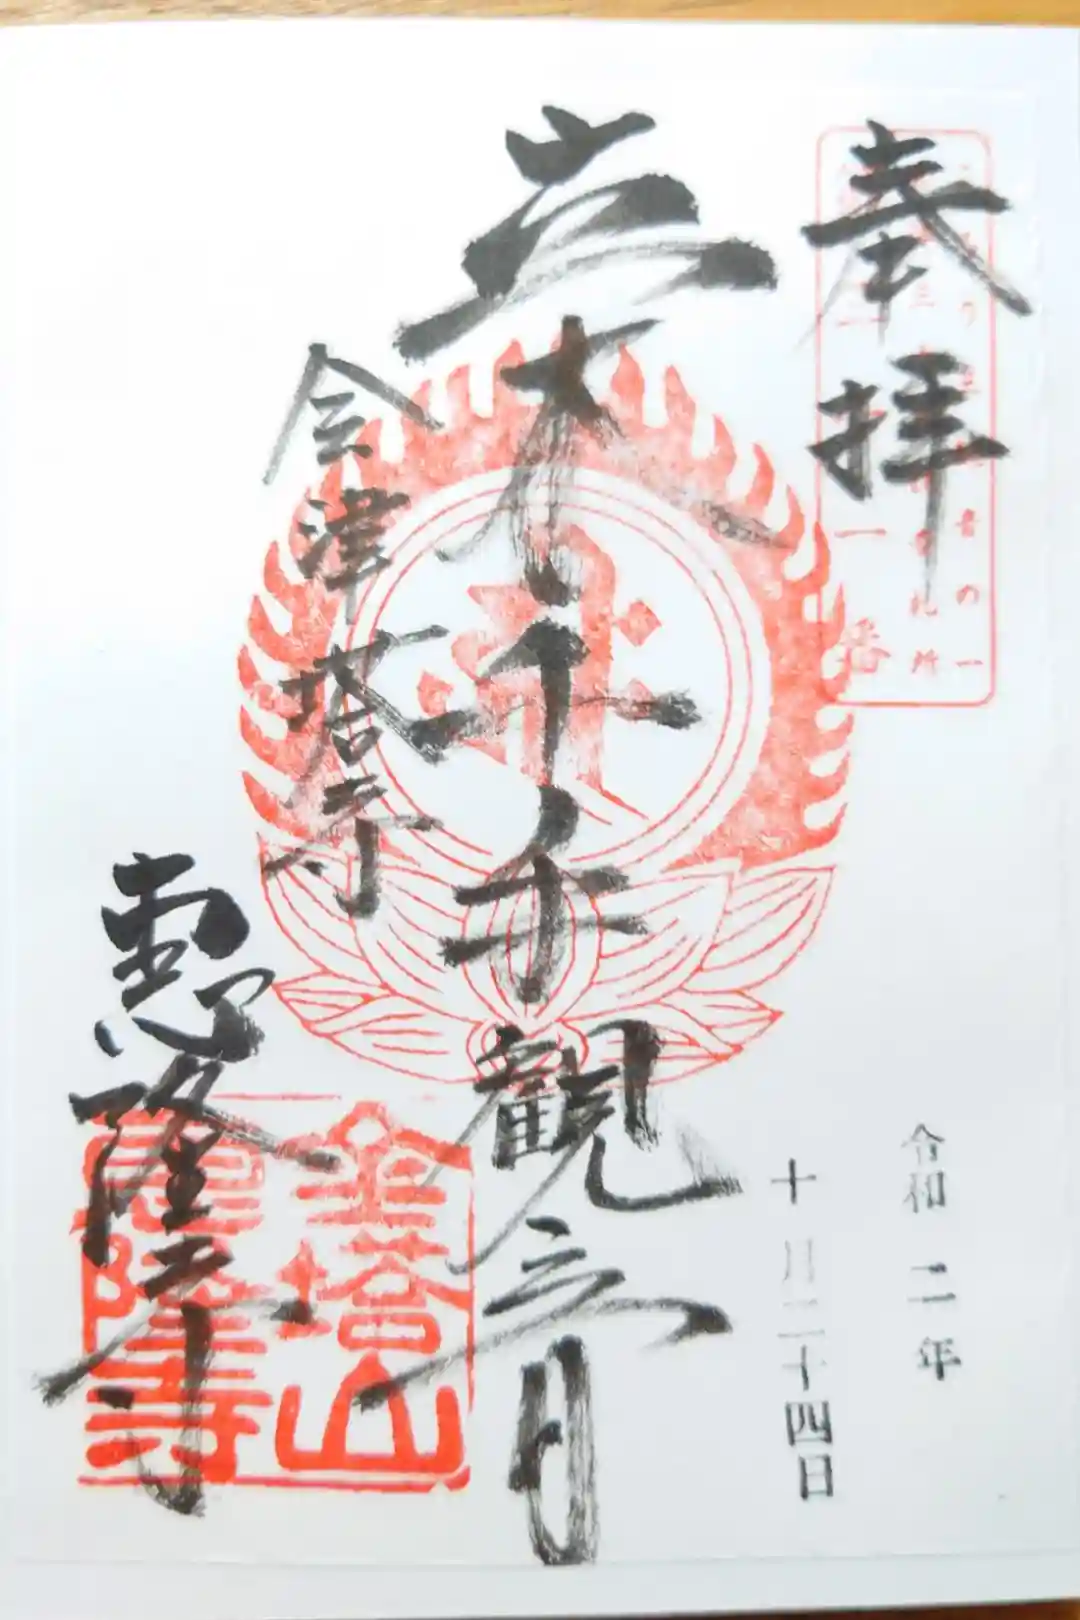 奉拝
立木千手観音
会津塔寺
恵隆寺
金塔山
恵隆寺
令和二年
十月二十四日